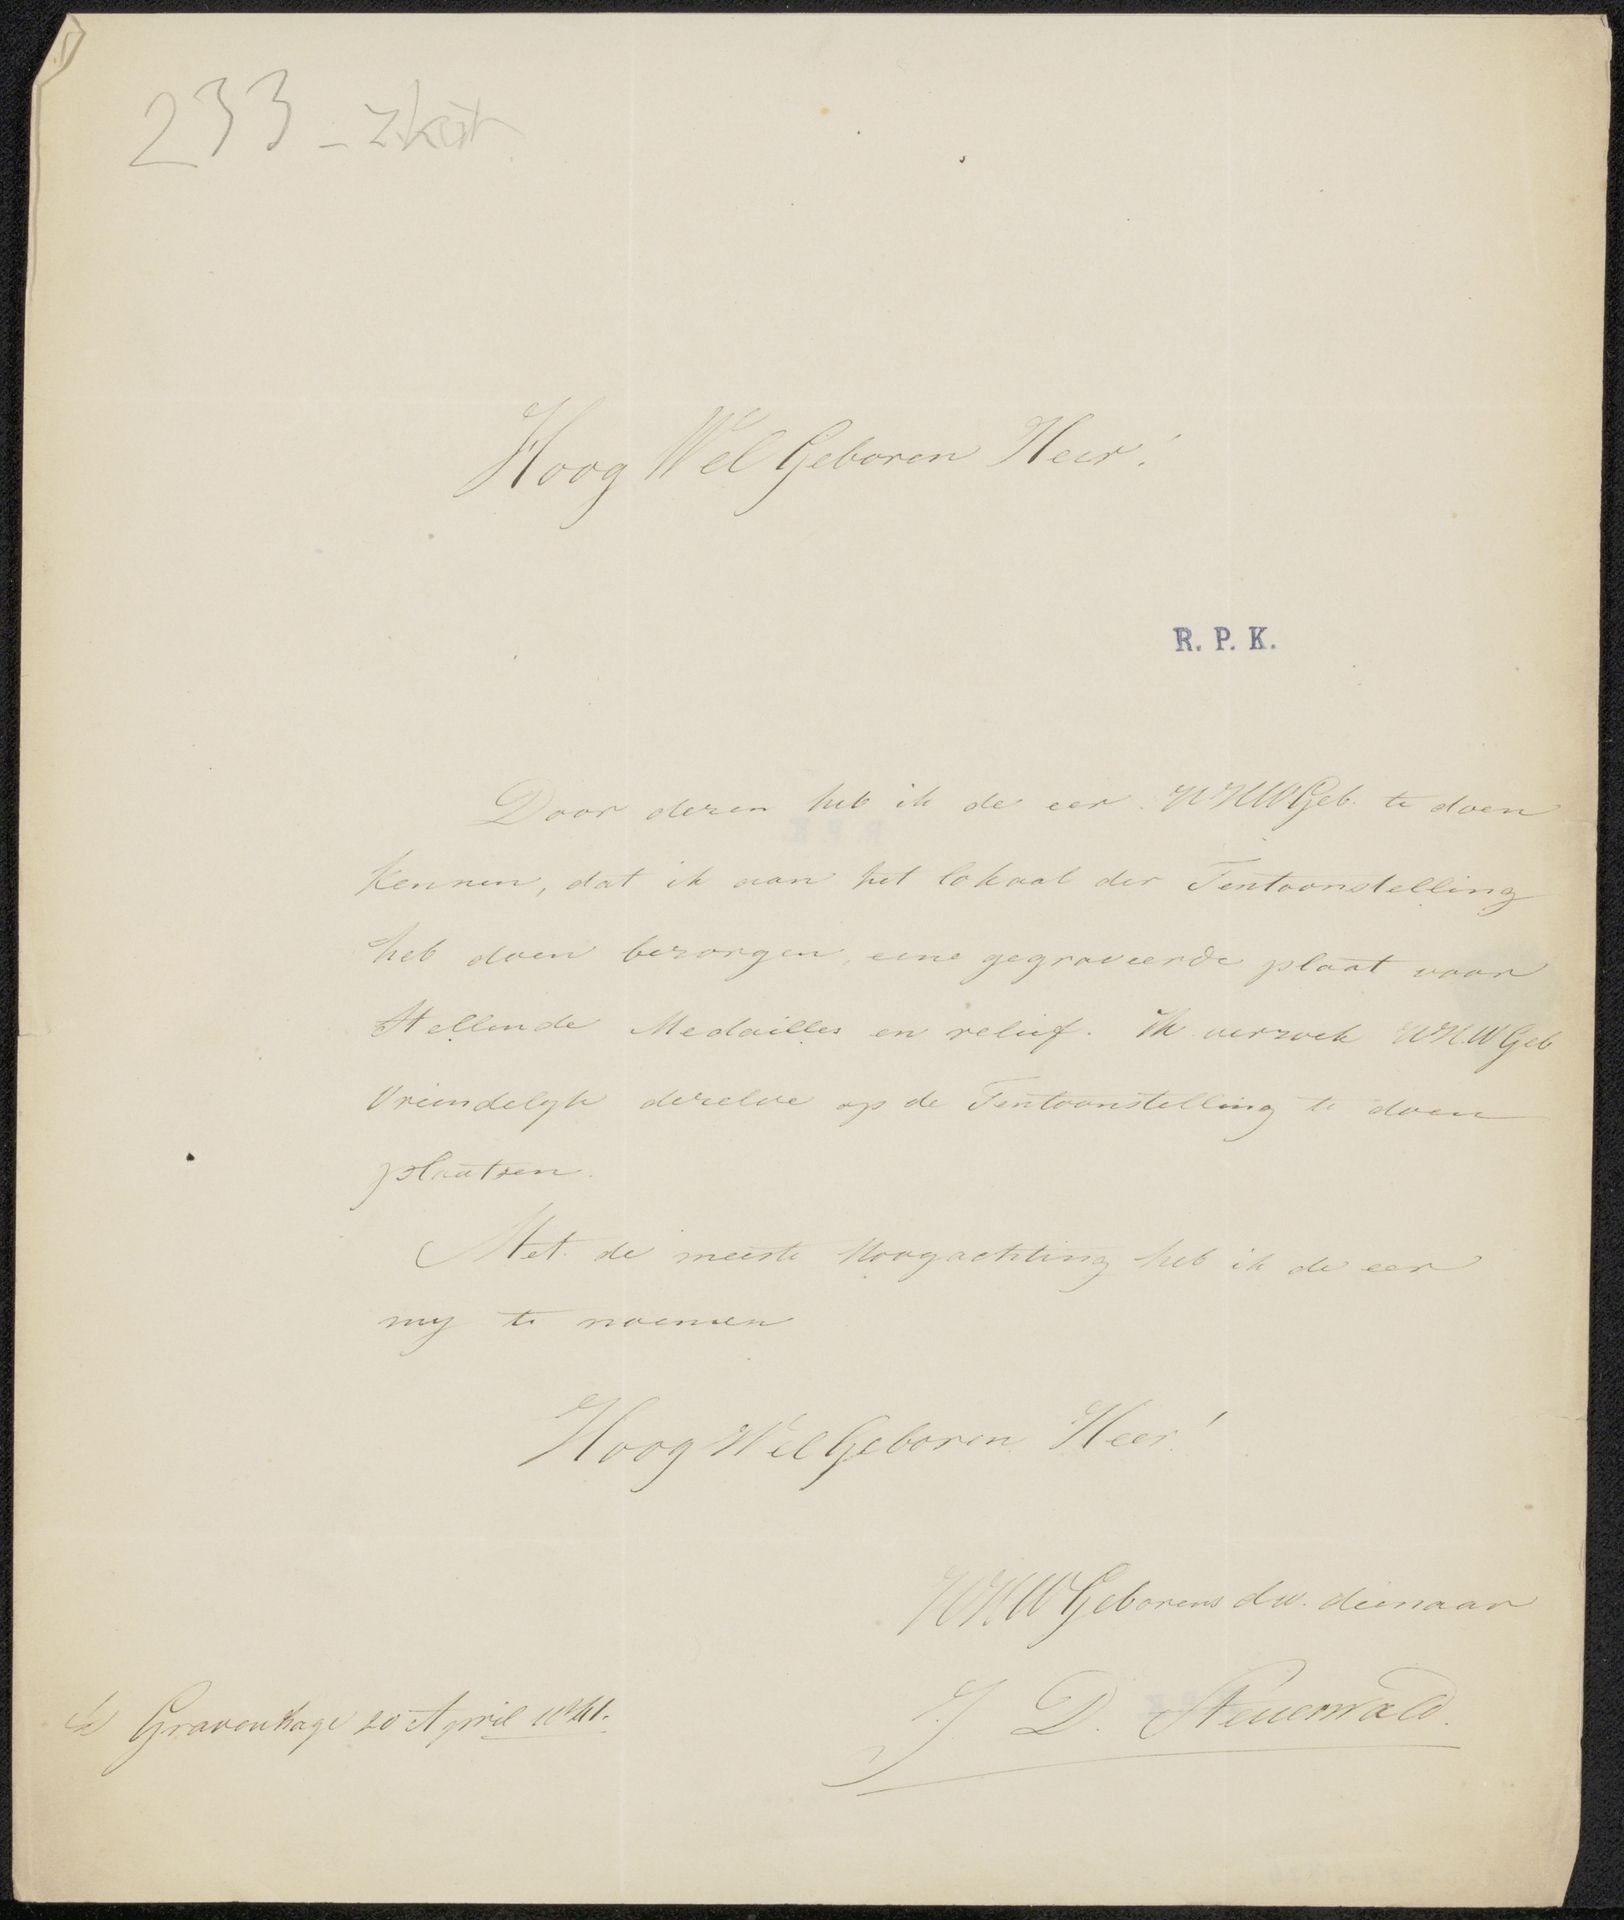 233 -
Hoog Wel Geboren Heer!
R. P. K.
Door dezen heb ik de eer UHWGeb. te doen
kennen, dat ik aan het lokaal der Tentoonstelling
heb doen bezorgen, eene gegraveerde plaat voor
stellende Medailles en relief. Ik verzoek UH.WGeb
vriendelyk dezelve op de Tentoonstelling te doen
plaatsen.
Met de meeste Hoogachting heb ik de eer
my te noemen
Hoog Wel Geboren Heer!
UHWGeborens dw. dienaar
J. D. Steuerwald.
's Gravenhage 20 April 1841.